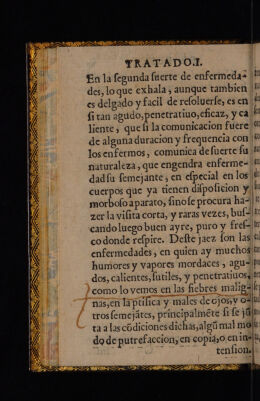 TRATADO.I.
En la segunda suerte de enfermeda-
des, lo que exhala, aunque tambien
es delgado y facil de resoluerse, es en
si tan agudo, penetratiuo, eficaz, y ca
liente, que si la comunicacion fuere
de alguna duracion y frequencia con
los enfermos, comunica de suerte su
naturaleza, que engendra enferme-
dad su semejante, en especial en los
cuerpos que ya tienen disposicion y
morboso aparato, sino se procura ha-
zer la visita corta, y raras vezes, bus-
cando luego buen ayre, puro y fres-
co donde respire. Deste jaez son las
enfermedades, en quien ay muchos
humores y vapores mordaces, agu-
dos, calientes, sutiles, y penetratiuos,
como lo vemos en las fiebres malig-
nas, en la ptisica y males de ojos, y o-
tros semejãtes, principalmẽte si se jũ
ta a las cõdiciones dichas, algũ mal mo
do de putrefaccion, en copia, o en in-
tension.